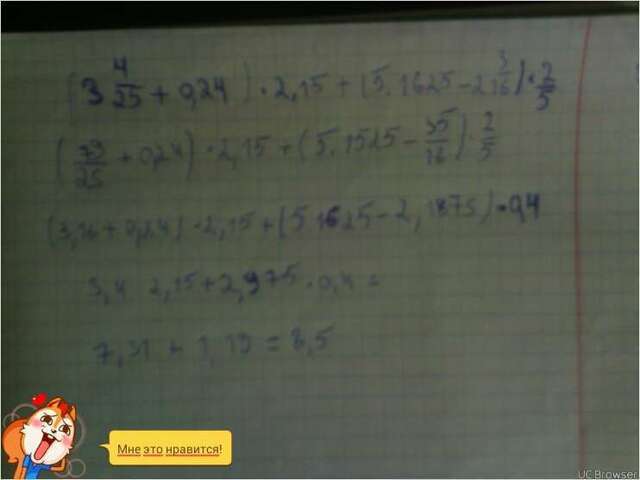 (3 4/25 + 0,24) · 2,15 + (5,1625 - 2 3/16) · 2/5
(79/25 + 0,24) · 2,15 + (5,1525 - 35/16) · 2/5
(3,16 + 0,24) · 2,15 + (5,1625 - 2,1875) · 0,4
3,4 2,15 + 2,975 · 0,4 =
7,31 + 1,19 = 8,5
Мне это нравится!
UC Browser